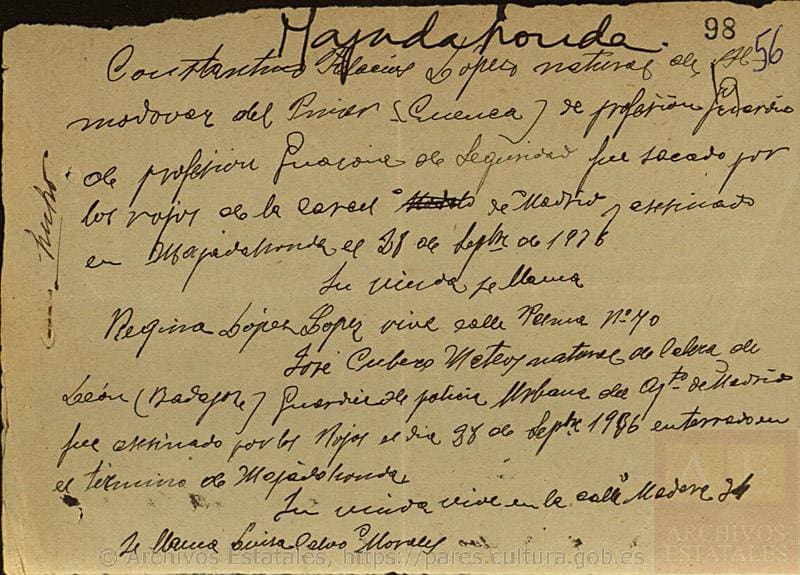 Majadahonda. 98 56
Constantino Palacios López natural de Al
modovar del Pinar (Cuenca) de profesión Guardia
de profesion Guardia de Seguridad fue sacado por
los rojos de la carcel Modelo de Madrid y assinado
en Majadahonda el 28 de Sepbre de 1936
Su viuda se llama
Regina López Lopez vive calle Palma Nº 70
José Cubero Mateos natural de Cabeza de
León (Badajoz) Guardia de policia Urbana del Aytº de Madrid
fue assinado por los Rojos el dia 28 de Sepbre 1936 enterrado en
el término de Majadahonda
Su viuda vive en la calle Madera 34
Se llama Luisa Calvo Morales
hecho
© Archivos Estatales, https://pares.cultura.gob.es
AE
ARCHIVOS
ESTATALES